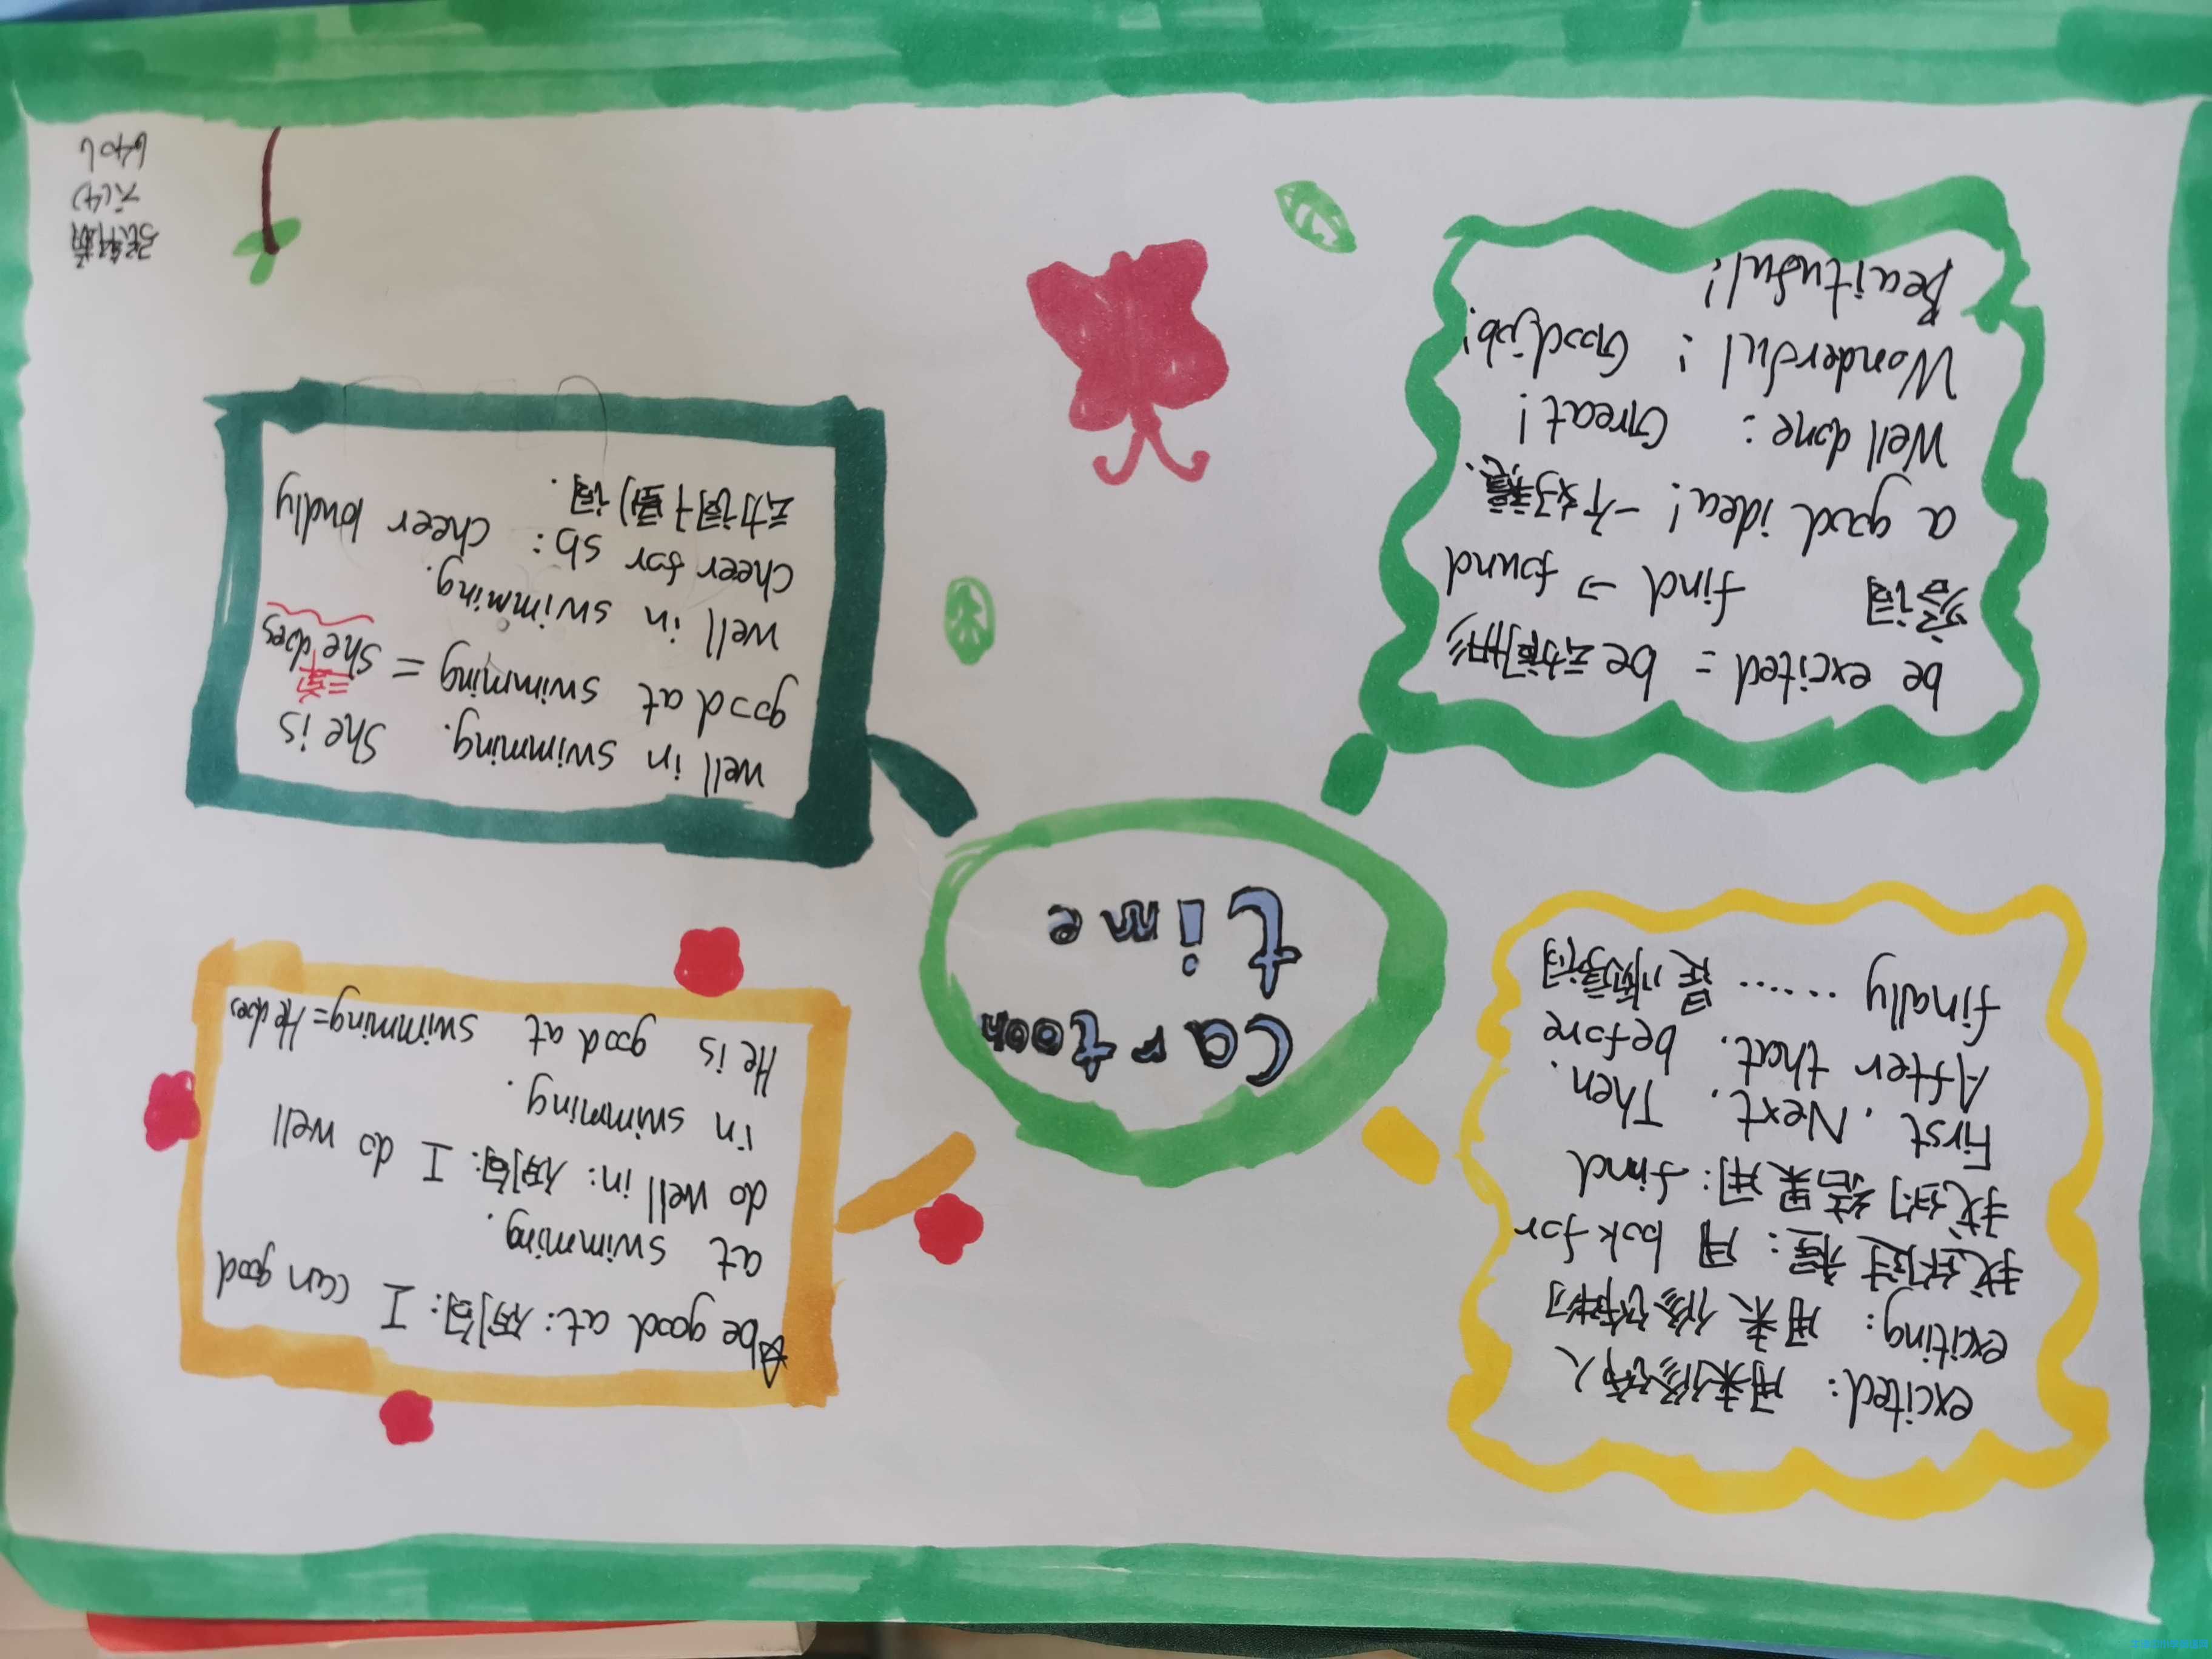 excited: 用来修饰人
exciting: 用来修饰物
找的过程: 用 look for
找的结果用: find
First. Next. Then.
After that. before
finally ...... 是顺序词
☆be good at: 例句: I can good
at swimming.
do well in: 例句: I do well
in swimming.
He is good at swimming=He does
Cartoon
time
be excited = be动词+形
容词 find → found
a good idea! 一个好主意.
Well done: Great!
Wonderful! Good job!
Beaituful!
well in swimming. She is
good at swimming = She does
三单
well in swimming.
cheer for sb: cheer loudly
动词+副词.
六(4)